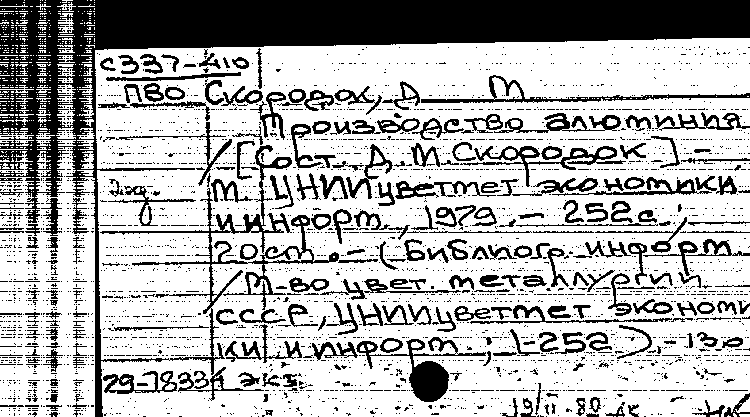 С337-410
ПВО Скородок, Д М
Производство алюминия
/ [Сост. Д. М. Скородок] -
М. ЦНИИцветмет экономики
и информ., 1979. - 252 с.;
20 см. - (Библиогр. информ.
/ М-во цвет. металлургии
СССР, ЦНИИцветмет экономи
ки и информ.; 1-252)
29-78334 экз